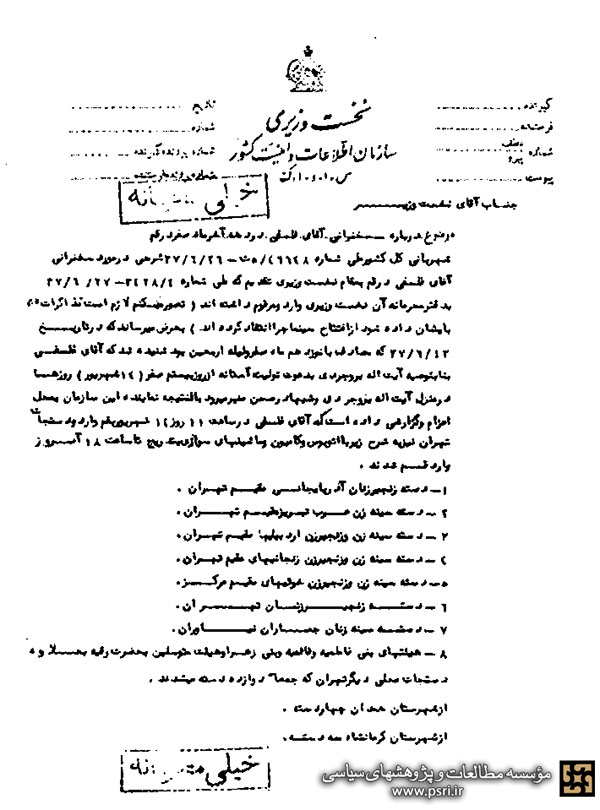 نخست وزیری
سازمان اطلاعات و امنیت کشور
س.ا.و.ا.ک
گیرنده
فرستنده
شماره عطف
پیرو
پیوست
تاریخ
شماره
شماره پرونده گیرنده
شماره پرونده فرستنده
خیلی محرمانه
جناب آقای نخست وزیر
موضوع درباره - سخنرانی آقای فلسفی در دهه آخر ماه صفر در قم
شهربانی کل کشور طی شماره ۴۶۶۴۸/ ۵ت - ۳۷/۶/۲۶ شرحی در مورد سخنرانی
آقای فلسفی در قم بمقام نخست وزیری تقدیم که طی شماره ۳۴۲۸/۴ - ۳۷/۶/۲۷
بدفتر محرمانه آن نخست وزیری وارد و مرقوم داشته اند ( تصور میکنم لازم است تذاکرات
بایشان داده شود از افتتاح سینماها انتقاد کرده اند ) بعرض میرساند که در تاریخ
که مصادف با نوزدهم ماه صفر و لیله اربعین بود شنیده شد که آقای فلسفی
بنا بتوصیه آیت اله بروجردی بدعوت تولیت آستانه از روز بیستم صفر ( ۱۴ شهریور ) روزها
در منزل آیت اله بروجردی و شبها در صحن منبر میرود بالنتیجه نماینده این سازمان بمحل
اعزام و گزارشی داده است که آقای فلسفی در ساعت ۱۱ روز ۱۴ شهریور بقم وارد و دستجات
تهران نیز به شرح زیر با اتوبوس و کامیون و ماشینهای سواری تا ساعت ۱۸ آنروز
وارد قم شدند .
۱- دسته زنجیرزنان آذربایجانی مقیم تهران .
۲- دسته سینه زن عرب تبریز مقیم تهران .
۳- دسته سینه زن و زنجیرزن اردبیلیها مقیم تهران .
۴- دسته سینه زن و زنجیرزن زنجانیهای مقیم تهران .
۵- دسته سینه زن و زنجیرزن خوئیهای مقیم مرکز .
۶- دسته زنجیرزنان تهران .
۷- دسته سینه زنان جماران نیاوران .
۸- هیئتهای بنی فاطمیه و فائمیه و بنی زهرا و هیئت متوسلین بحضرت رقیه بعلاوه
دستجات محلی دیگر تهران که جمعا دوازده دسته میشدند .
از شهرستان همدان چهار دسته .
از شهرستان کرمانشاه سه دسته .
خیلی محرمانه
مؤسسه مطالعات و پژوهشهای سیاسی
www.psri.ir